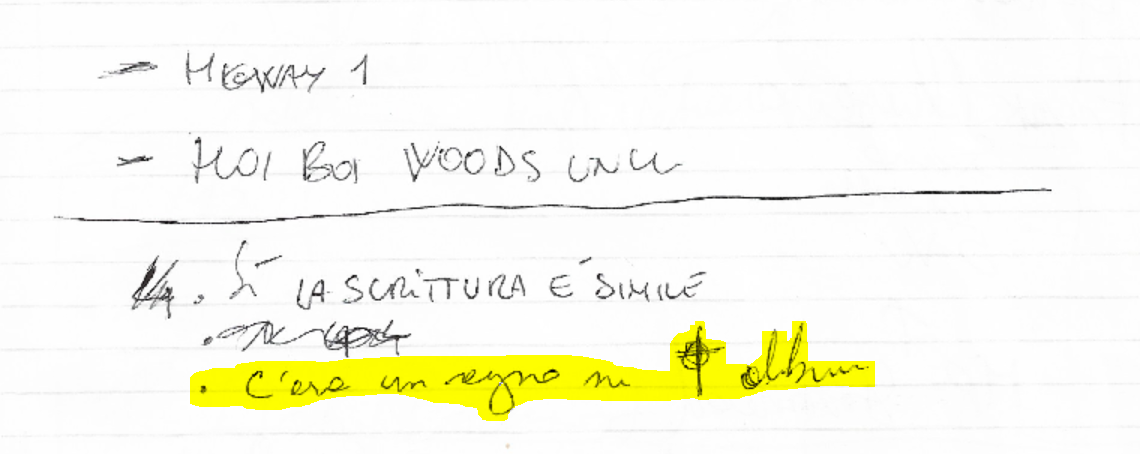 → HEGWAY 1
- HOI BOI WOODS
. Sì LA SCRITTURA E' SIMILE
. C'era un segno su album